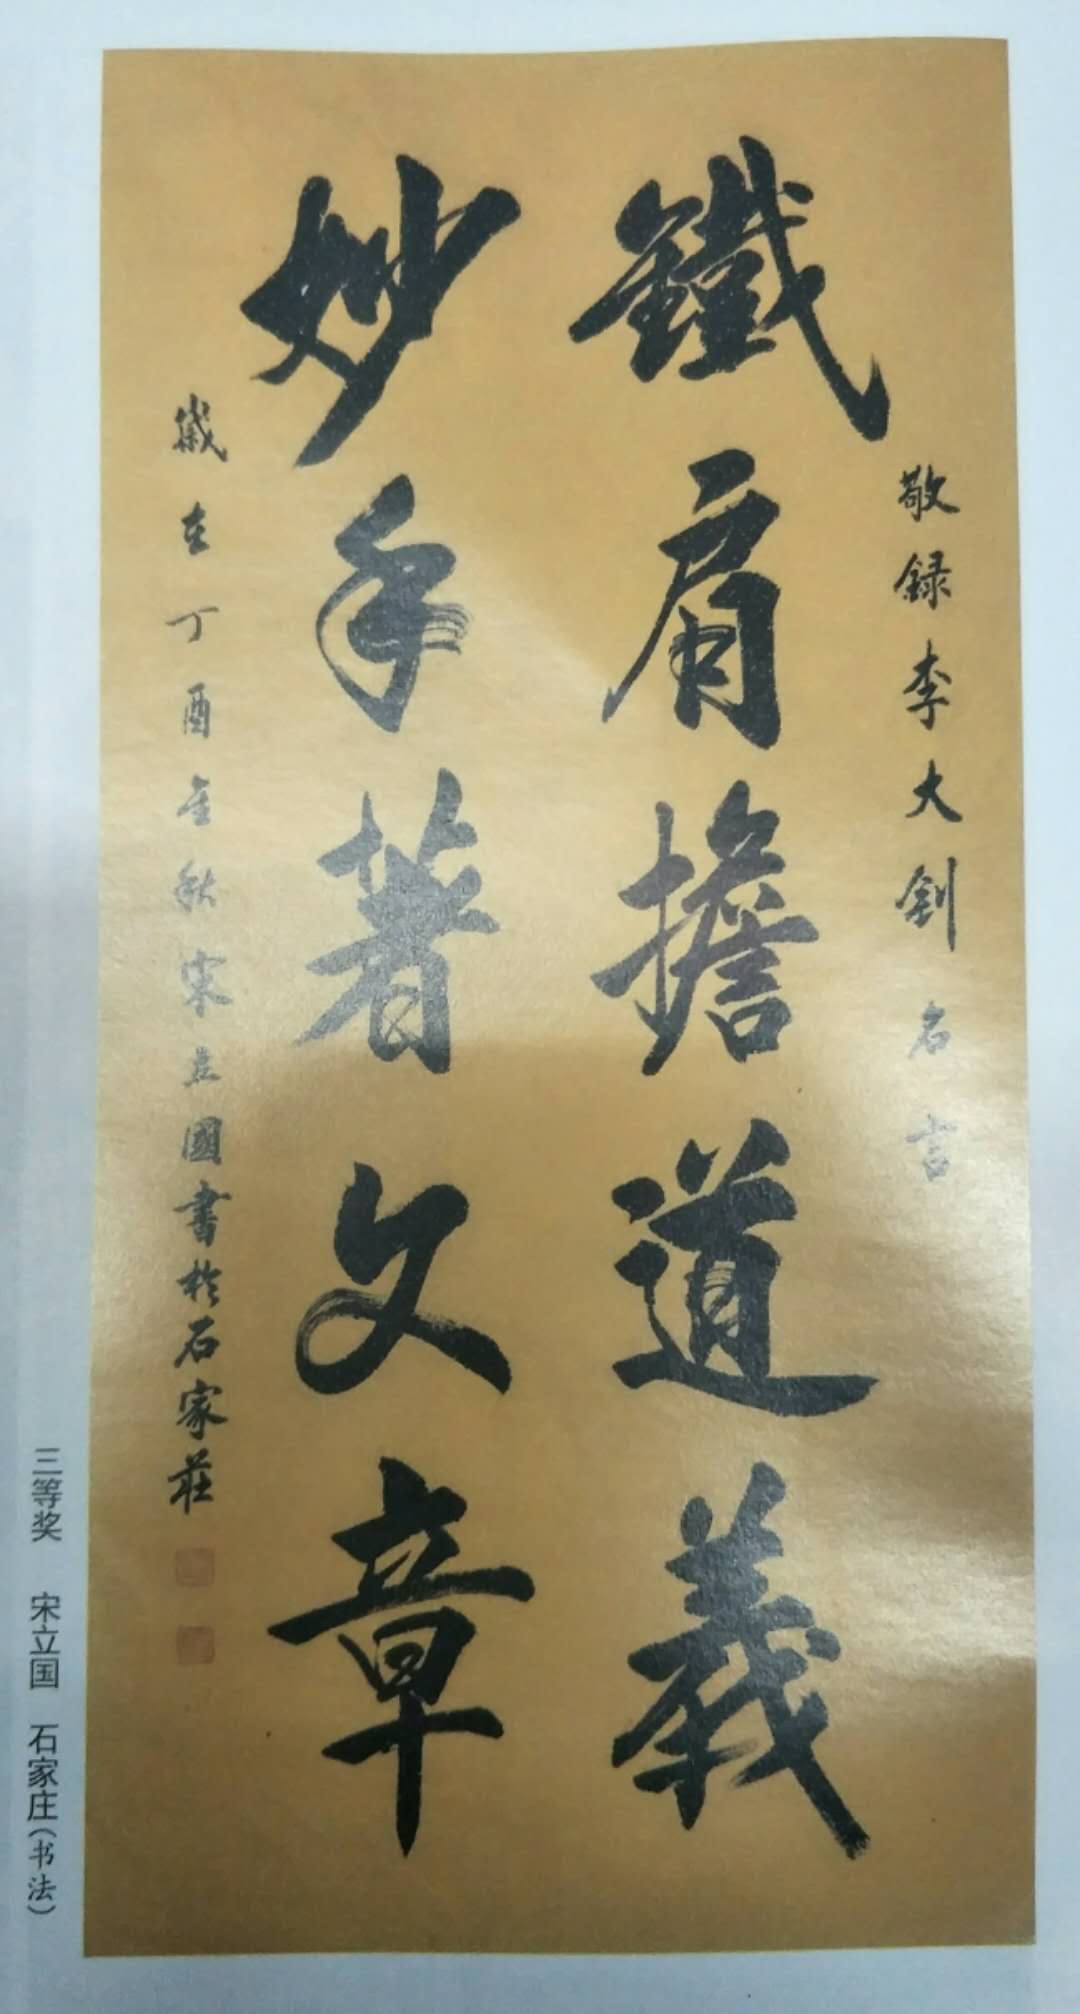 敬録李大釗名言
鐵肩擔道義
妙手著文章
歲在丁酉金秋宋立國書於石家莊
三等奖 宋立国 石家庄(书法)